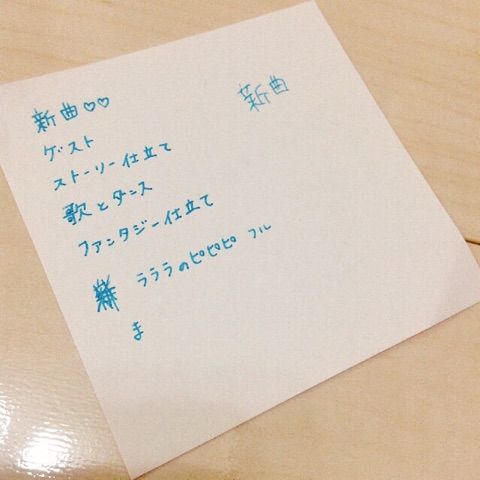 新曲♡♡
新曲
ゲスト
ストーリー仕立て
歌とダンス
ファンタジー仕立て
ラララのピピピ フル
ま